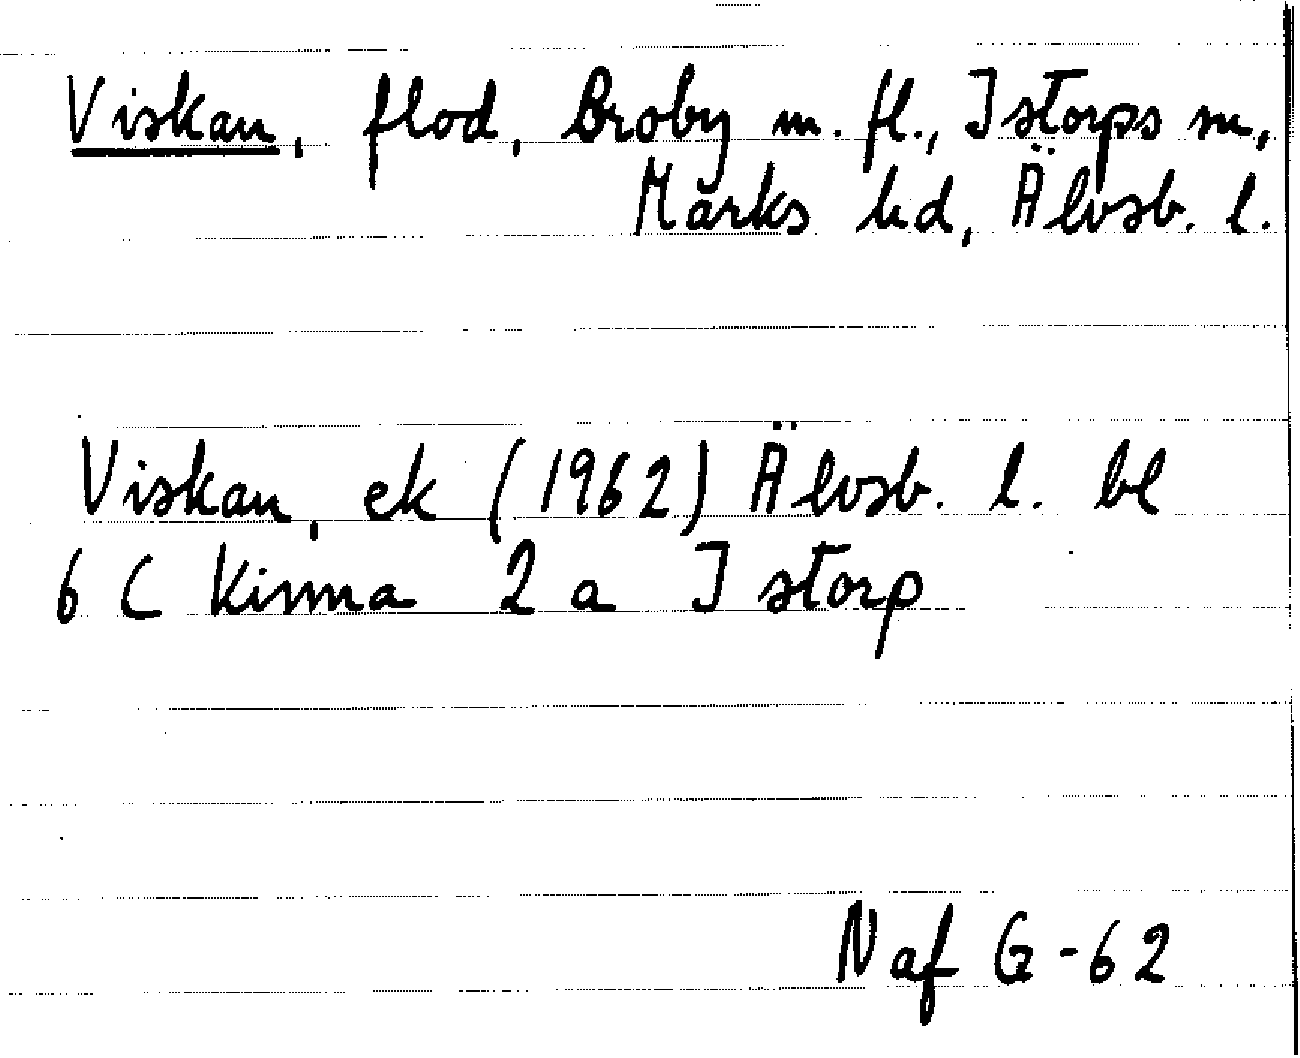 Viskan, flod, Broby m. fl., Istorps sn,
Marks hd, Älvsb. l.
Viskan, ek (1962) Älvsb. l. bl
6 C Kinna 2 a Istorp
Naf G-62